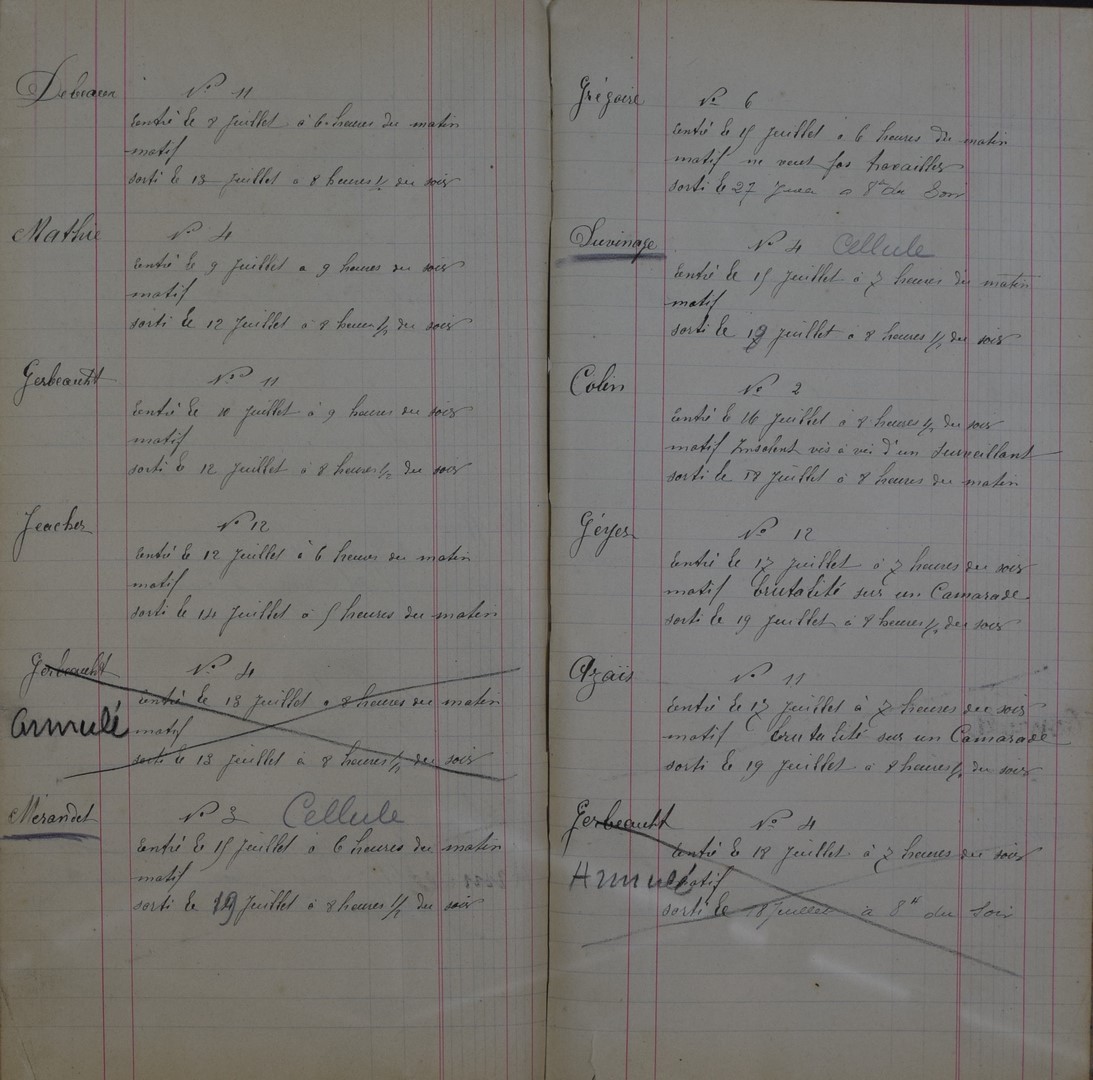 Debeaux N° 11
entré le 8 Juillet à 6 heures du matin
motif
sorti le 13 Juillet à 8 heures 1/2 du soir
Mathie N° 4
entré le 9 Juillet à 9 heures du soir
motif
sorti le 12 Juillet à 8 heures 1/2 du soir
Gerbeault N° 11
entré le 10 Juillet à 9 heures du soir
motif
sorti le 12 Juillet à 8 heures 1/2 du soir
N° 12
entré le 12 Juillet à 6 heures du matin
motif
sorti le 14 Juillet à 5 heures du matin
Gerbeault N° 4
entré le 13 Juillet à 8 heures du matin
Annulé motif
sorti le 13 Juillet à 8 heures 1/2 du soir
Mérandet N° 3 Cellule
entré le 15 Juillet à 6 heures du matin
motif
sorti le 19 Juillet à 8 heures 1/2 du soir
Grégoire N° 6
entré le 15 Juillet à 6 heures du matin
motif ne veut pas travailler
sorti le 27 à 8h du Soir
Duvinage N° 4 Cellule
entré le 15 Juillet à 7 heures du matin
motif
sorti le 19 Juillet à 8 heures 1/2 du soir
Colin N° 2
entré le 16 Juillet à 8 heures 1/2 du soir
motif Insolent vis à vis d'un Surveillant
sorti le 18 Juillet à 8 heures du matin
Géyer N° 12
entré le 17 Juillet à 7 heures du soir
motif brutalité sur un Camarade
sorti le 19 Juillet à 8 heures 1/2 du soir
Azaïs N° 11
entré le 17 Juillet à 7 heures du soir
motif brutalité sur un Camarade
sorti le 19 Juillet à 8 heures 1/2 du soir
Gerbeault N° 4
entré le 18 Juillet à 7 heures du soir
Annulé motif
sorti le 18 Juillet à 8H du Soir